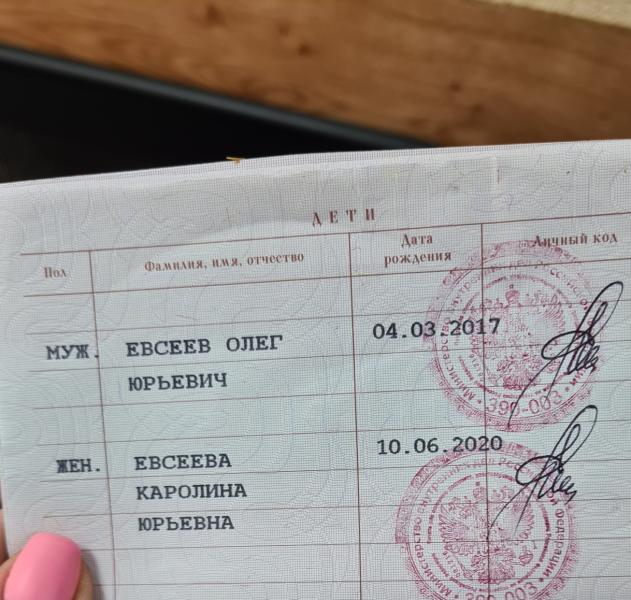 ДЕТИ
Пол Фамилия, имя, отчество Дата рождения Личный код
МУЖ. ЕВСЕЕВ ОЛЕГ 04.03.2017
ЮРЬЕВИЧ
390-003
ЖЕН. ЕВСЕЕВА 10.06.2020
КАРОЛИНА
ЮРЬЕВНА
Министерство внутренних дел Российской Федерации
390-003